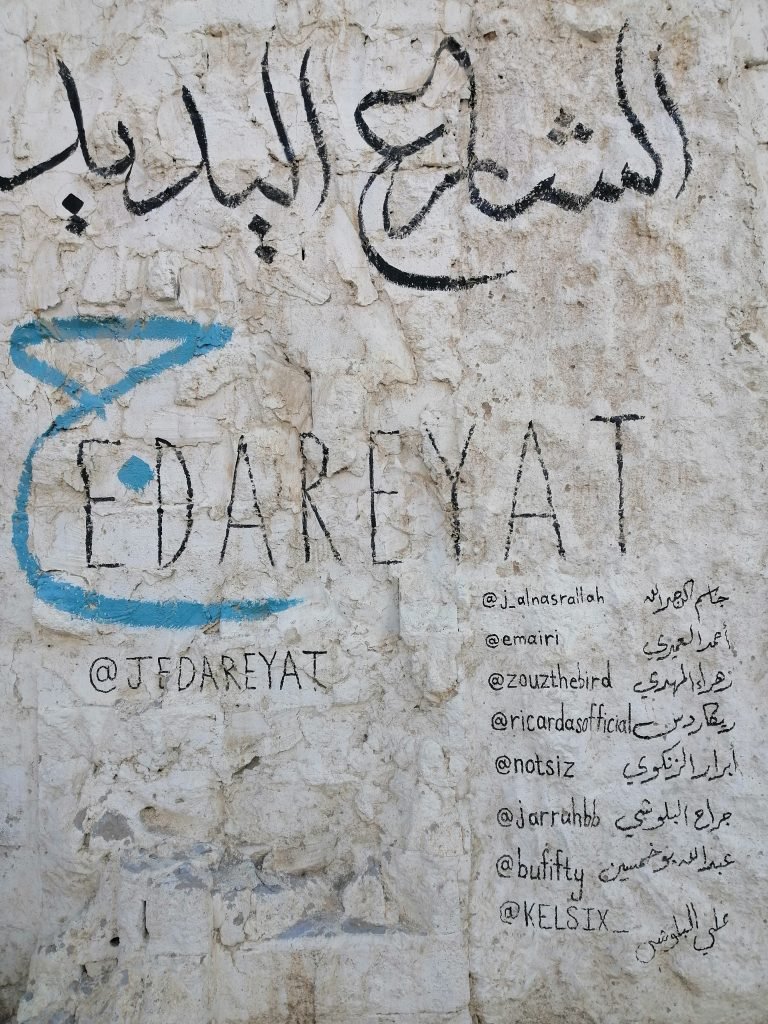 الشارع اليديد
ج EDAREYAT
@JEDAREYAT
@j_alnasrallah جاسم النصرالله
@emairi أحمد العميري
@zouzthebird زهراء المهدي
@ricardasofficial ريكاردس
@notsiz ابرار الزنكوي
@jarrahbb جراح البلوشي
@bufifty عبدالله بوخمسين
@KELSIX_ علي البلوشي